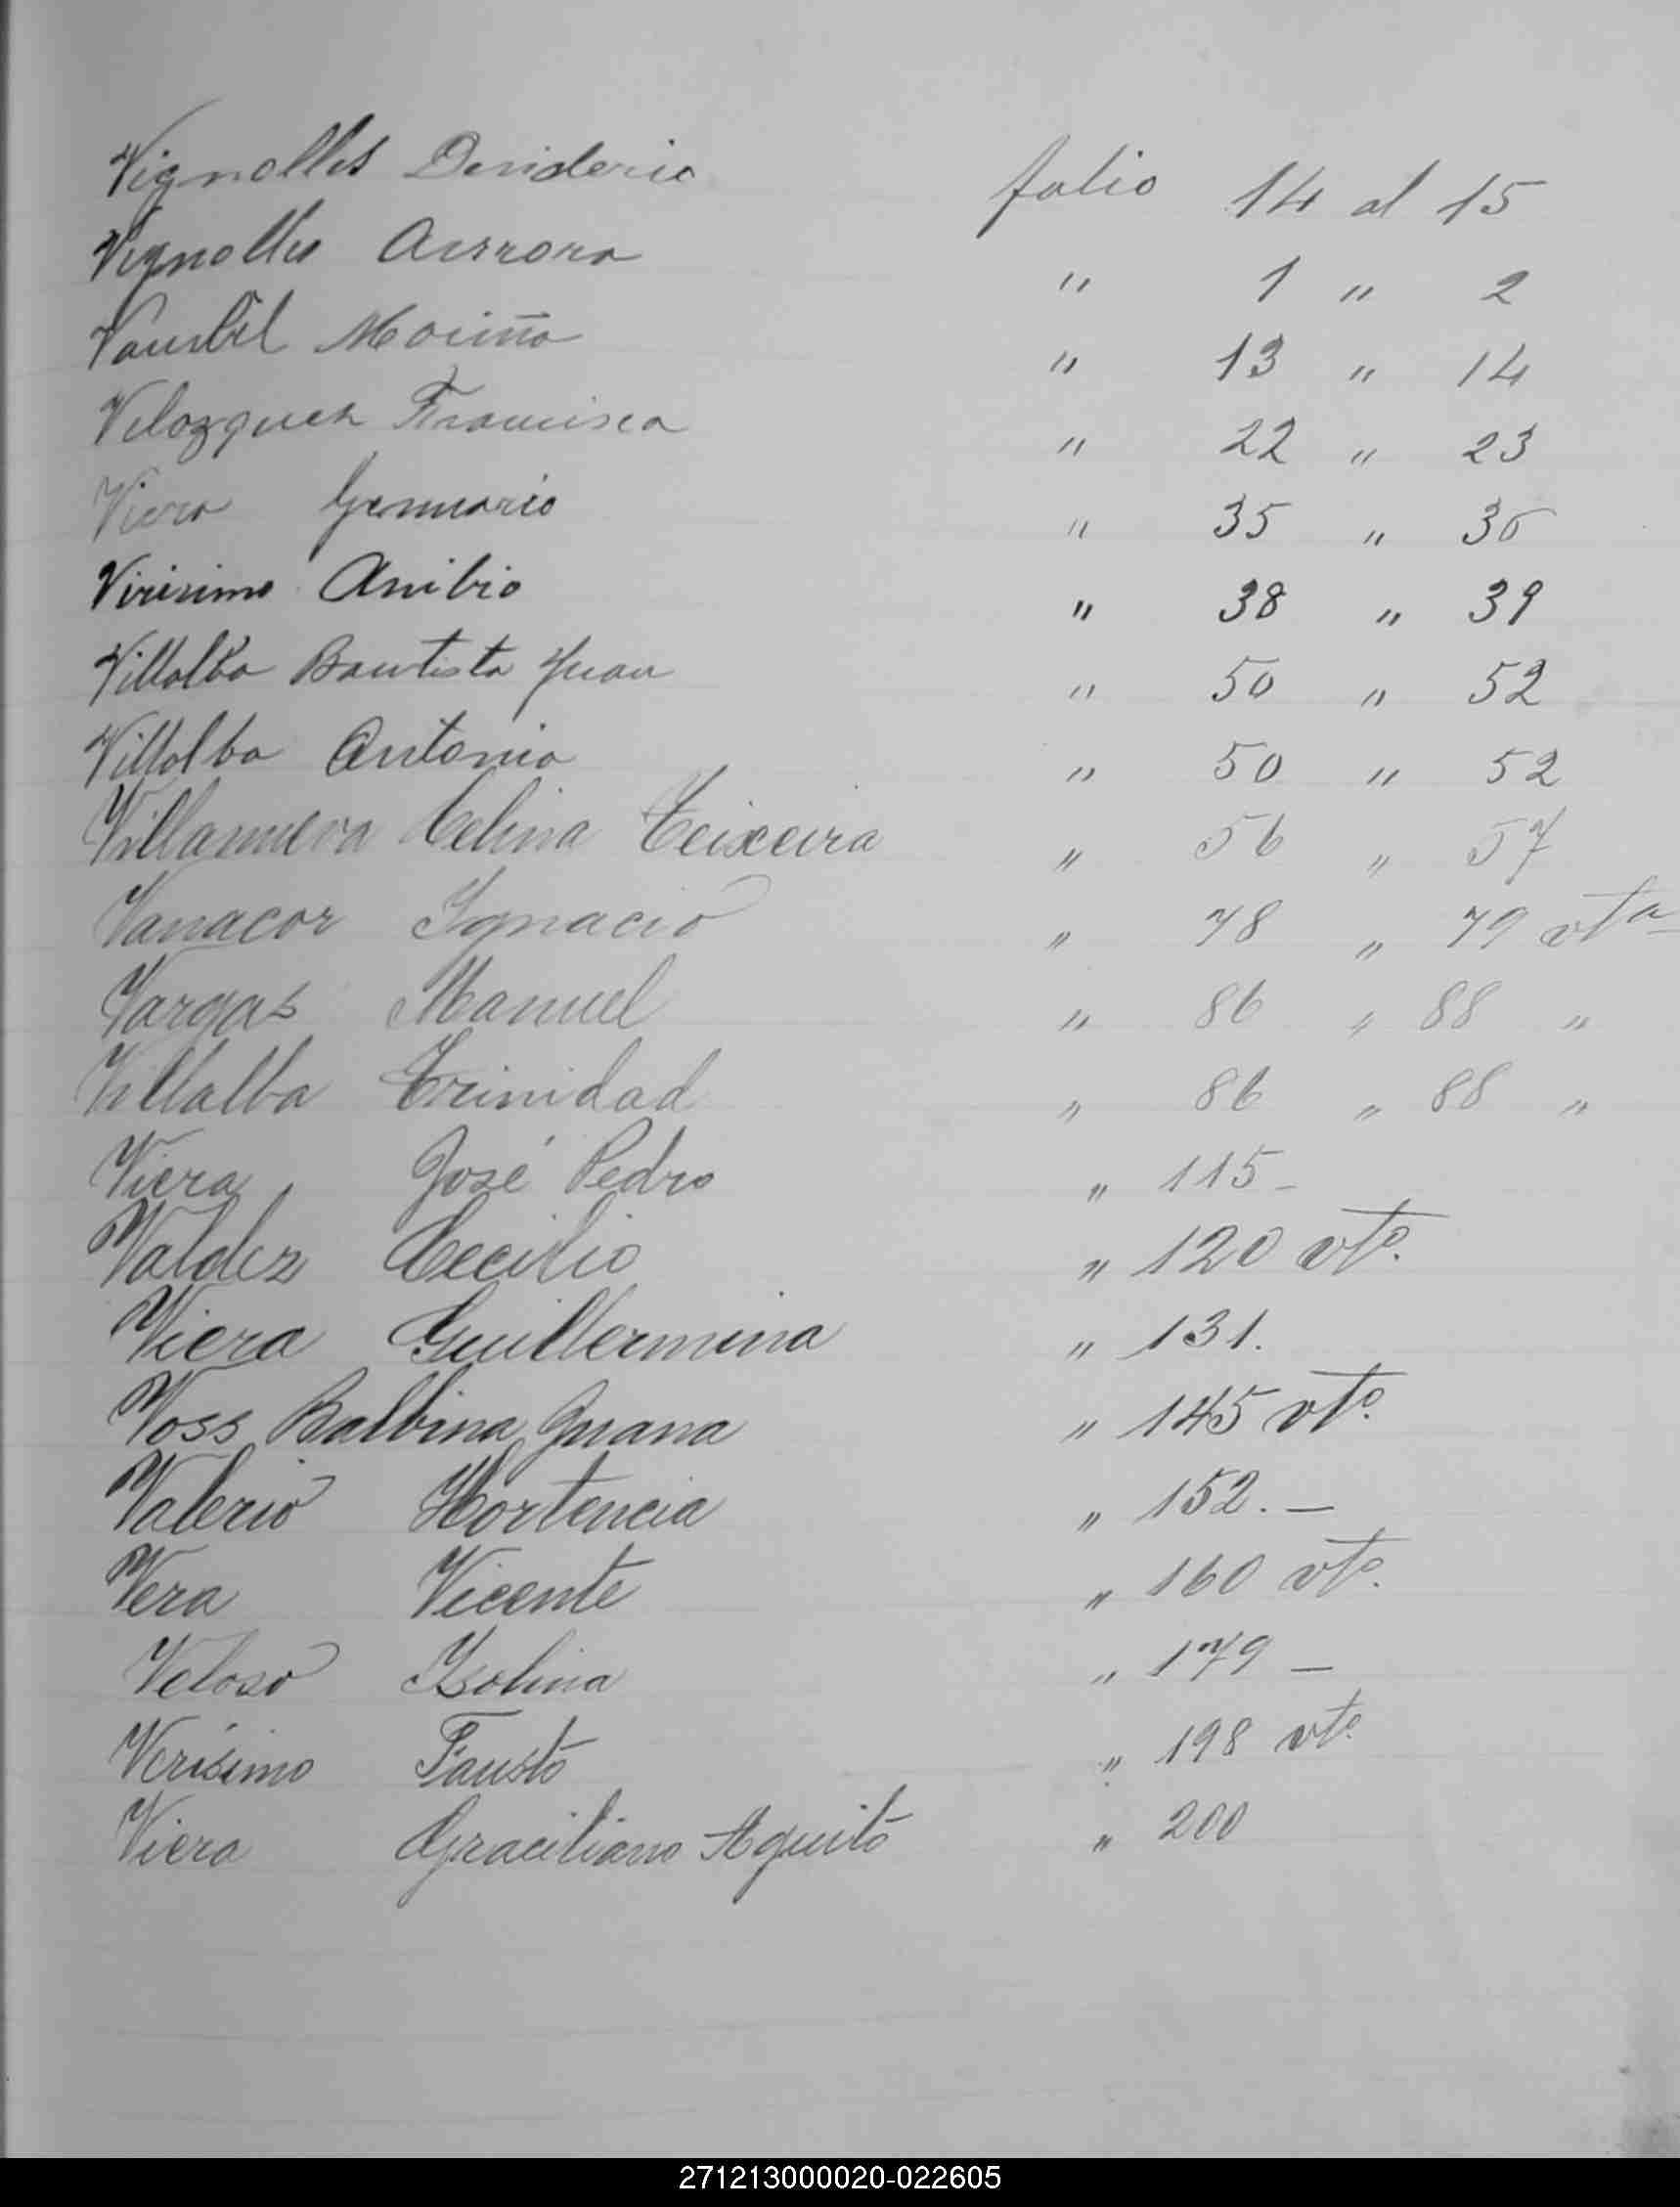 Vignolles Desiderio folio 14 al 15
Vignolles Aurrora " 1 " 2
Moriño " 13 " 14
Velazquez Francisca " 22 " 23
Viera Gennario " 35 " 36
Virisimo Anibio " 38 " 39
Villalba Bautista Juan " 50 " 52
Villalba Antonio " 50 " 52
Villanueva Celina Teixeira " 56 " 57
Vanacor Ignacio " 78 " 79 vta
Vargas Manuel " 86 " 88 "
Villalba Trinidad " 86 " 88 "
Viera José Pedro " 115 -
Valdez Cecilio " 120 vto.
Viera Guillermina " 131.
Voss Balbina Juana " 145 vto.
Valerio Hortencia " 152. -
Vera Vicente " 160 vto.
Veloso Isolina " 179 -
Verísimo Fausto " 198 vto
Viera Graciliano Aquito " 200
271213000020-022605